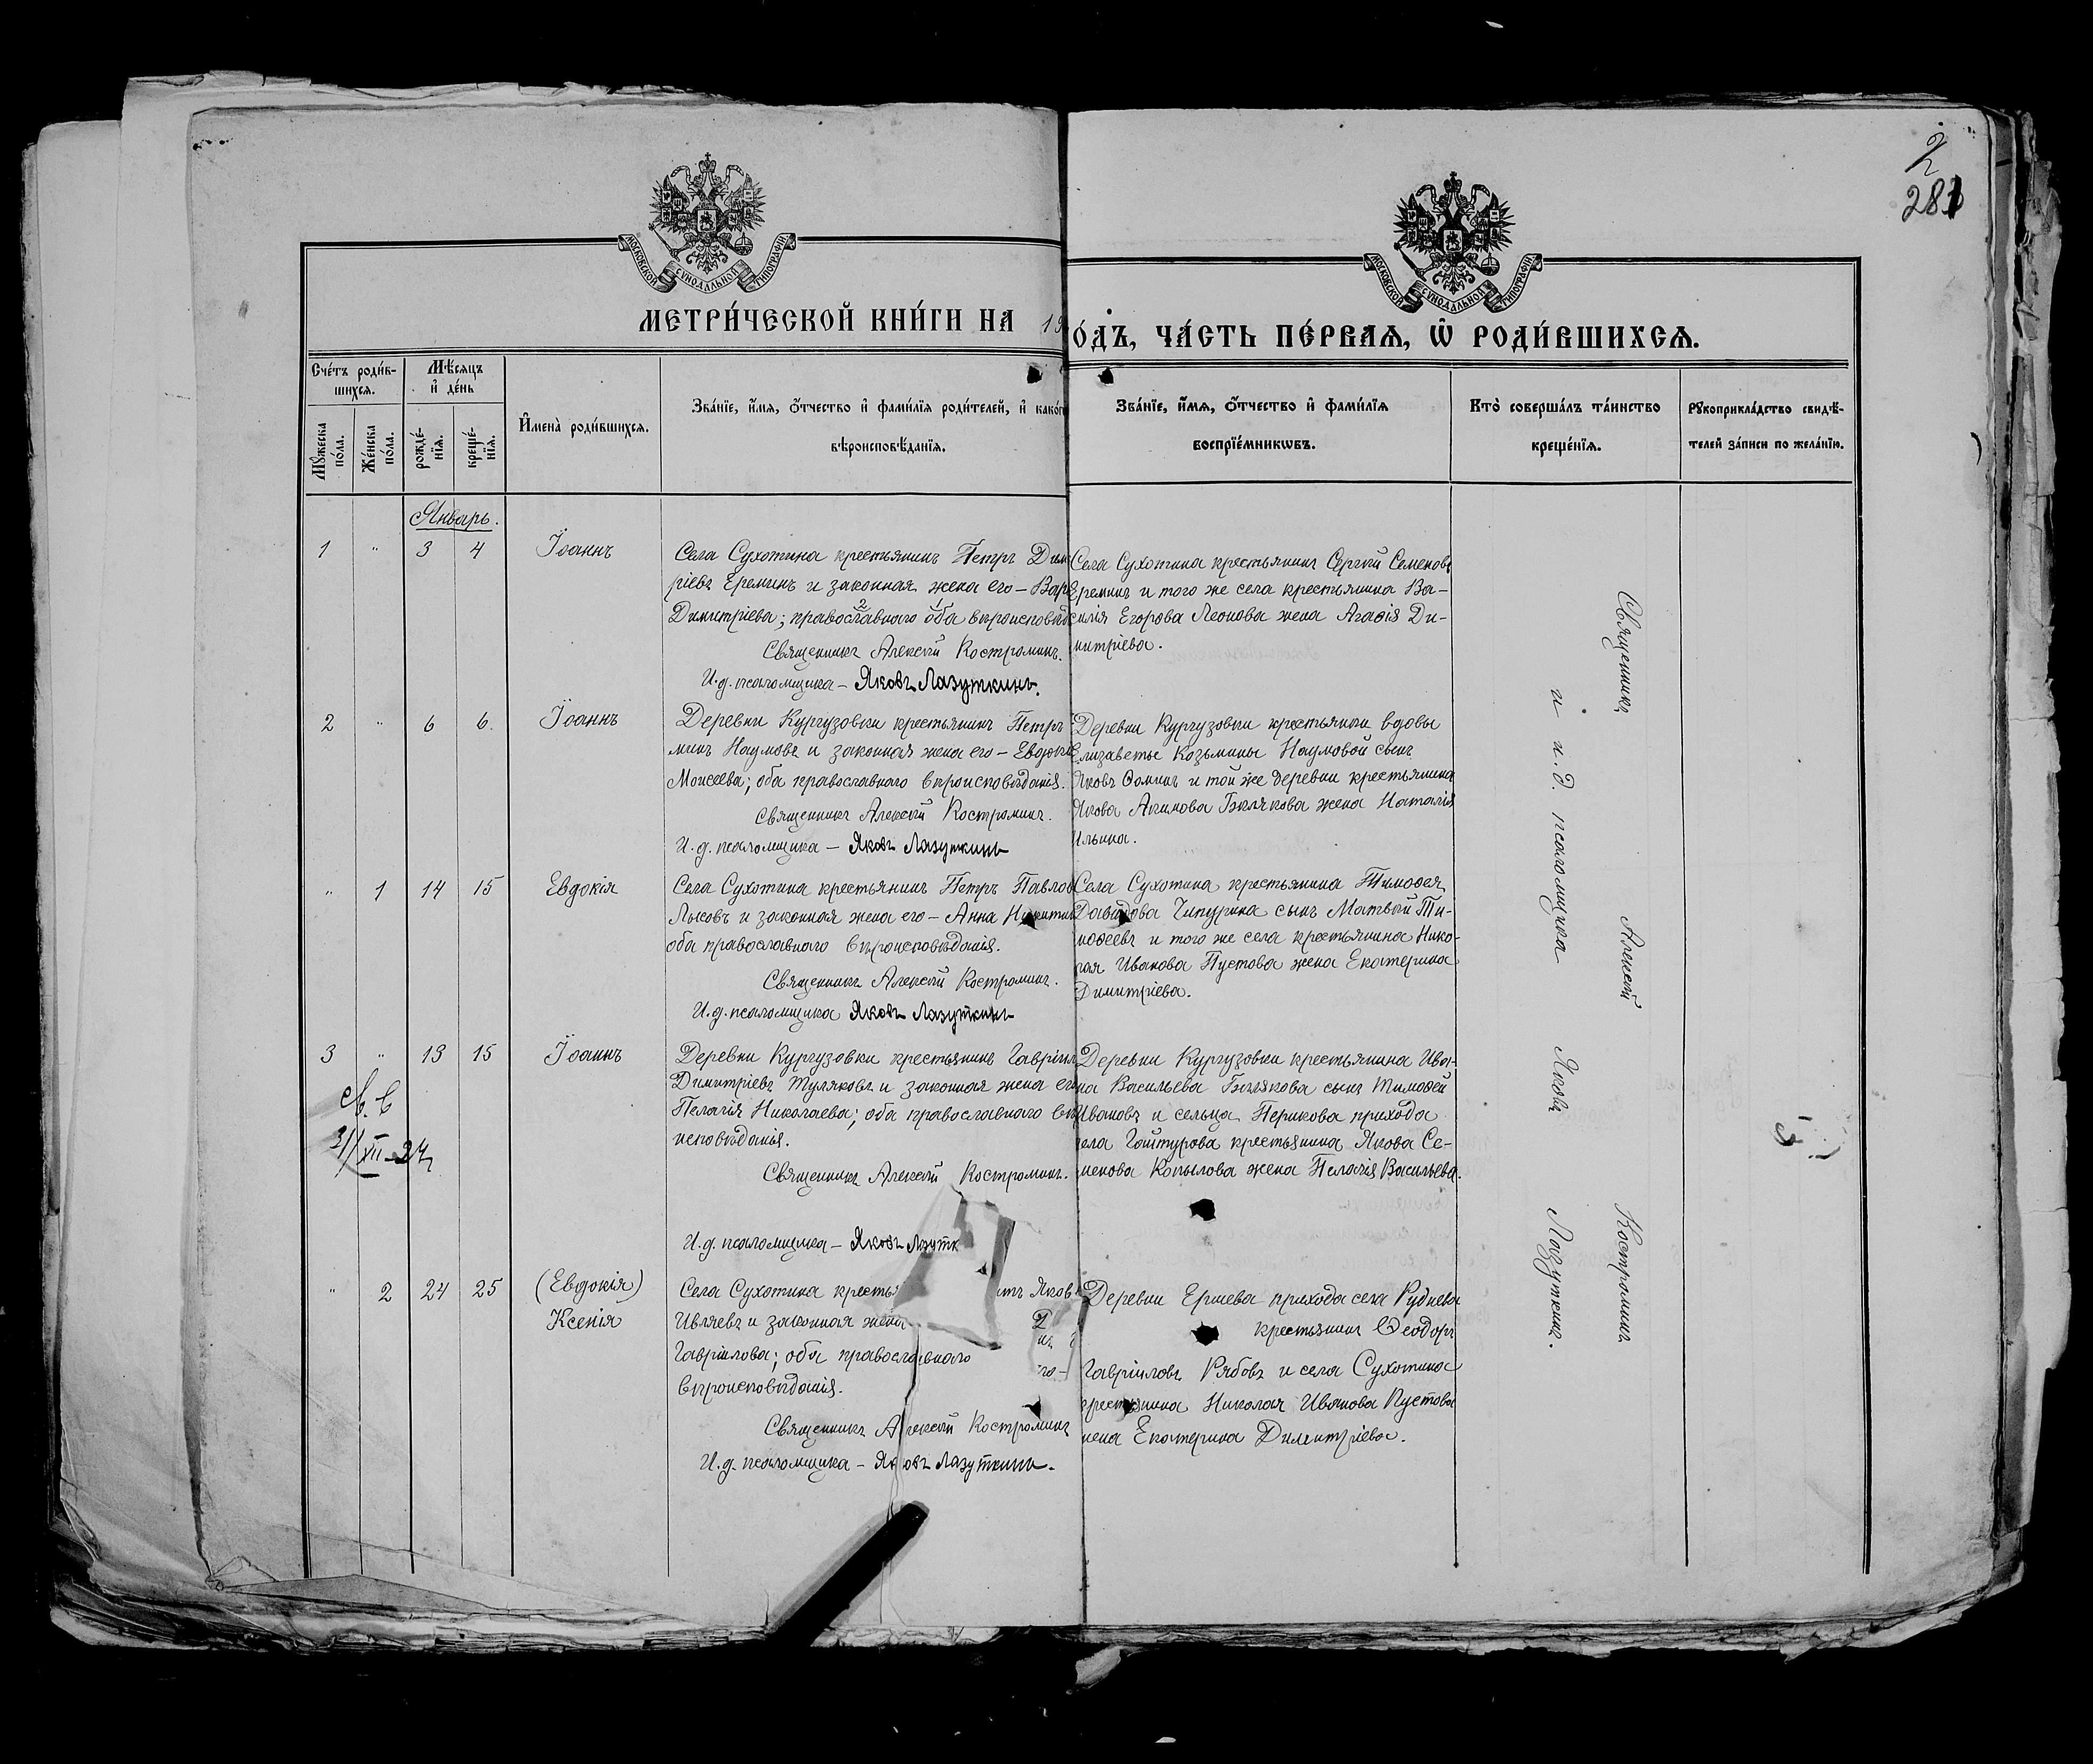 2
281
МОСКОВСКОЙ СѴНОДАЛЬНОЙ ТИПОГРАФІИ
МОСКОВСКОЙ СѴНОДАЛЬНОЙ ТИПОГРАФІИ
МЕТРИ́ЧЕСКОЙ КНИ́ГИ НА 19
О́ДЪ, ЧА́СТЬ ПЕ́РВАѦ, Ѡ҃ РОДИ́ВШИХСѦ.
Сче́тъ роди́в-
шихсѧ.
Мѣ́сѧцъ
и҆ де́нь
Мꙋ́жеска по́ла.
Же́нска по́ла.
рожде́-
нїѧ.
креще́-
нїѧ.
И҆мена̀ роди́вшихсѧ.
Зва́нїе, и҆́мѧ, ѻ҆́тчество и҆ фами́лїѧ роди́телей, и҆ како́г
вѣроисповѣ́данїѧ.
Зва́нїе, и҆́мѧ, ѻ҆́тчество и҆ фами́лїѧ
воспрїе́мникѡвъ.
Кто̀ соверша́лъ та́инство
креще́нїѧ.
Рꙋкоприкла́дство свидѣ́-
телей за́писи по жела́нїю.
Январь.
1 " 3 4 Іоаннъ
Села Сухотина крестьянинъ Петръ Дим
ріевъ Ереминъ и законная жена его – Вар
Димитріева; православнаго 2 оба 1 вѣроисповѣд
Священникъ Алексій Костроминъ.
И.д. псаломщика – Яковъ Лазуткинъ.
Села Сухотина крестьянинъ Сергій Семеновъ
Ереминъ и того же села крестьянина Ва-
силія Егорова Леонова жена Агафія Ди-
митріева.
2 " 6 6. Іоаннъ
Деревни Кургузовки крестьянинъ Петръ
минъ Наумовъ и законная жена его – Евдокі
Моисеева; оба православнаго вѣроисповѣданія.
Священникъ Алексій Костроминъ.
И.д. псаломщика – Яковъ Лазуткинъ
Деревни Кургузовки крестьянки вдовы
Елизаветы Козьмины Наумовой сынъ
Яковъ Ѳоминъ и той же деревни крестьянина
Якова Акимова Бѣлякова жена Наталія
Ильина.
" 1 14 15 Евдокія
Села Сухотина крестьянинъ Петръ Павлов
Лысовъ и законная жена его – Анна Никитин
оба православнаго вѣроисповѣданія.
Священникъ Алексій Костроминъ.
И.д. псаломщика Яковъ Лазуткинъ
Села Сухотина крестьянина Тимоѳея
Давидова Чипурина сынъ Матвѣй Ти-
моѳеевъ и того же села крестьянина Нико-
лая Иванова Пустова жена Екатерина
Димитріева.
3 " 13 15 Іоаннъ
Деревни Кургузовки крестьянинъ Гавріил
Димитріевъ Туляковъ и законная жена его
Пелагія Николаева; оба православнаго вѣ
исповѣданія.
Священникъ Алексій Костроминъ.
И.д. псаломщика – Яковъ Лазутк
Деревни Кургузовки крестьянина Ива-
на Васильева Бѣлякова сынъ Тимоѳей
Ивановъ и сельца Перикова прихода
села Гойтурова крестьянина Якова Се-
менова Копылова жена Пелагія Васильева.
XII 24
" 2 24 25 (Евдокія)
Ксенія
Села Сухотина крестья тъ Яков
Ивляевъ и законная жена
Гавріилова; оба православнаго го-
вѣроисповѣданія.
Священникъ Алексій Костроминъ
И.д. псаломщика – Яковъ Лазуткинъ.
Деревни Ершева прихода села Руднева
крестьянинъ Ѳеодоръ
Гавріиловъ Рябовъ и села Сухотина
крестьянина Николая Иванова Пустова
жена Екатерина Димитріева.
Священникъ Алексій Костроминъ
и и.д. псаломщика Яковъ Лазуткинъ.